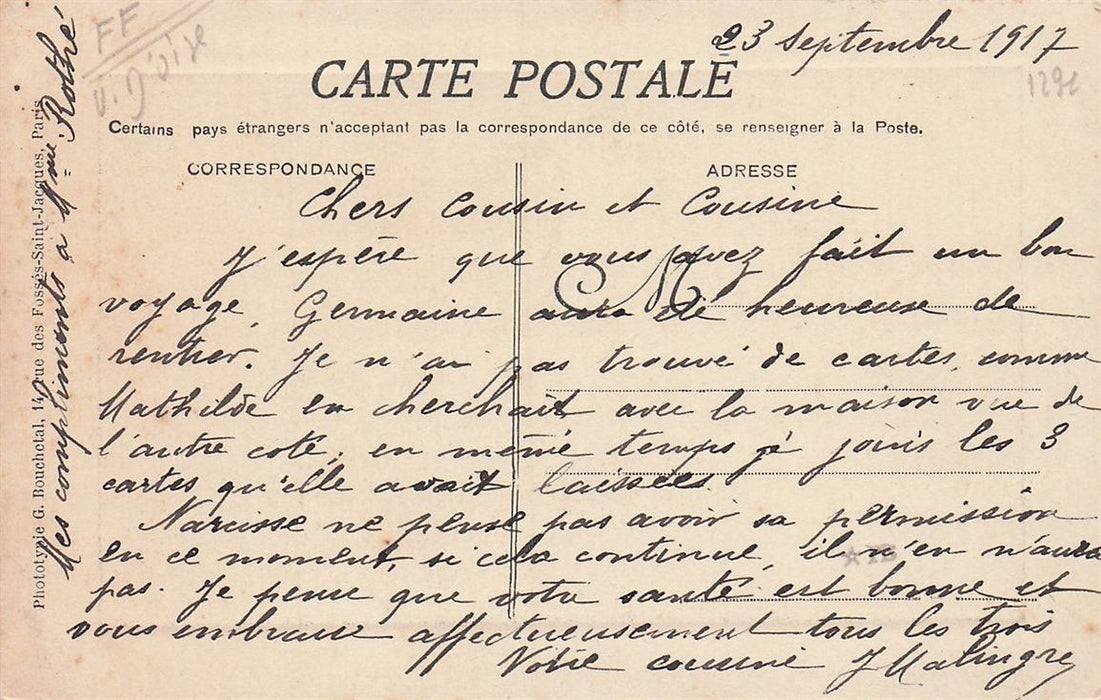 23 Septembre 1917
FF
V. D'oise
1292
CARTE POSTALE
Certains pays étrangers n'acceptant pas la correspondance de ce côté, se renseigner à la Poste.
CORRESPONDANCE
ADRESSE
Chers Cousin et Cousine
J'espère que vous avez fait un bon
M
voyage, Germaine aura été heureuse de
rentrer. Je n'ai pas trouvé de cartes comme
Mathilde en cherchait avec la maison vue de
l'autre coté, en même temps je joins les 3
cartes qu'elle avait laissées
Narcisse ne pense pas avoir sa permission
en ce moment, si cela continue, il n'en n'aura
pas. Je pense que votre santé est bonne et
vous embrasse affectueusement tous les trois
Votre cousine J Malingre
Mes compliments à Mme Rothé
Phototypie G. Bouchetal, 14, rue des Fossés-Saint-Jacques, Paris